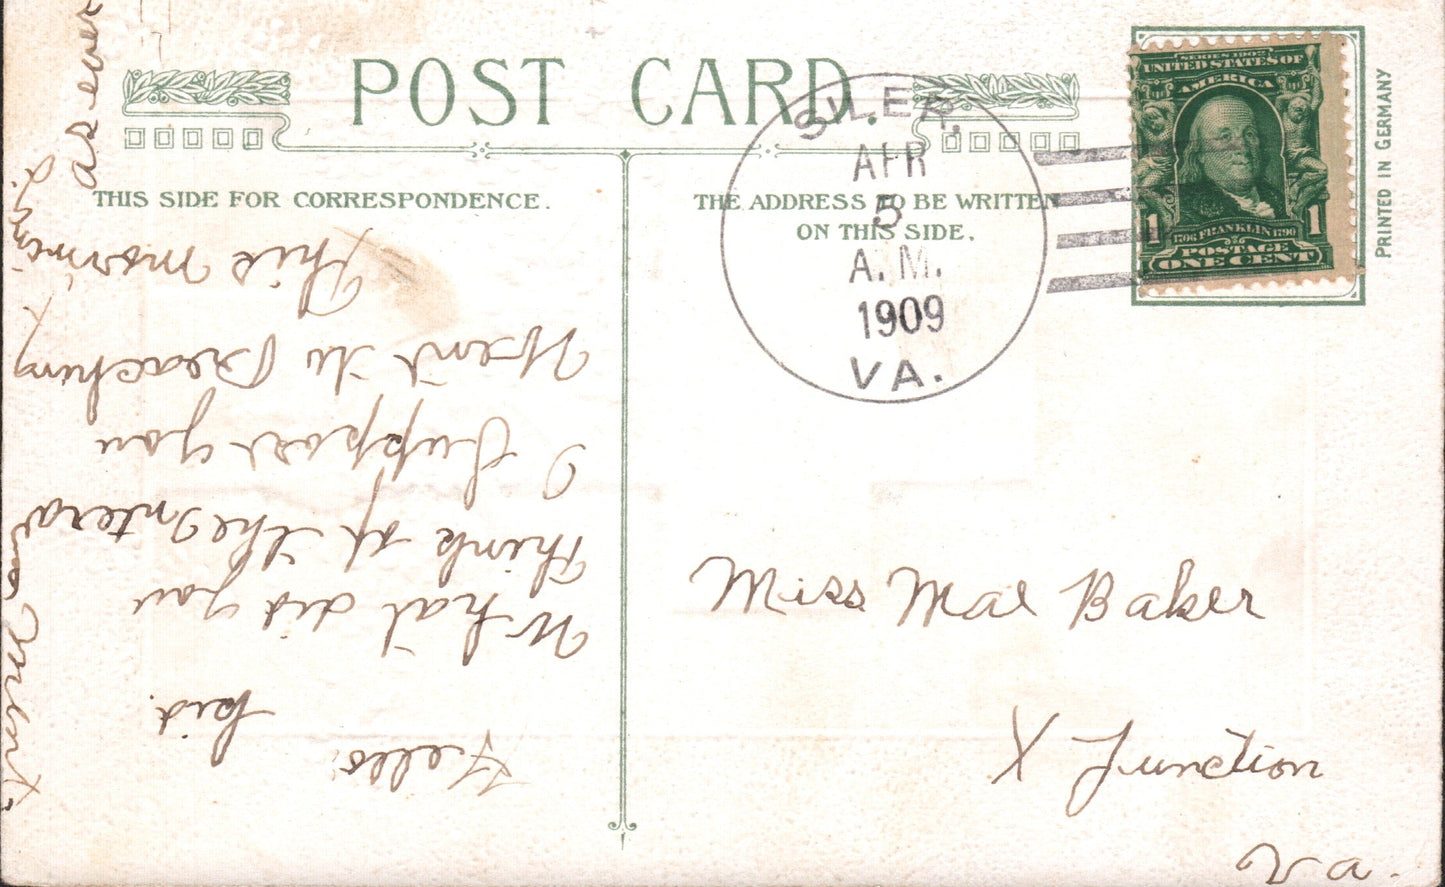 POST CARD.
THIS SIDE FOR CORRESPONDENCE.
THE ADDRESS TO BE WRITTEN
ON THIS SIDE.
SILER.
APR
5
A.M.
1909
VA.
SERIES 1902
UNITED STATES OF
AMERICA
1 1
1706 FRANKLIN 1790
POSTAGE
ONE CENT
PRINTED IN GERMANY
Miss Mae Baker
X Junction
Va.
Hello.
kid.
What did you
think of the
I suppose you
Went to Preaching
this morning
as ever